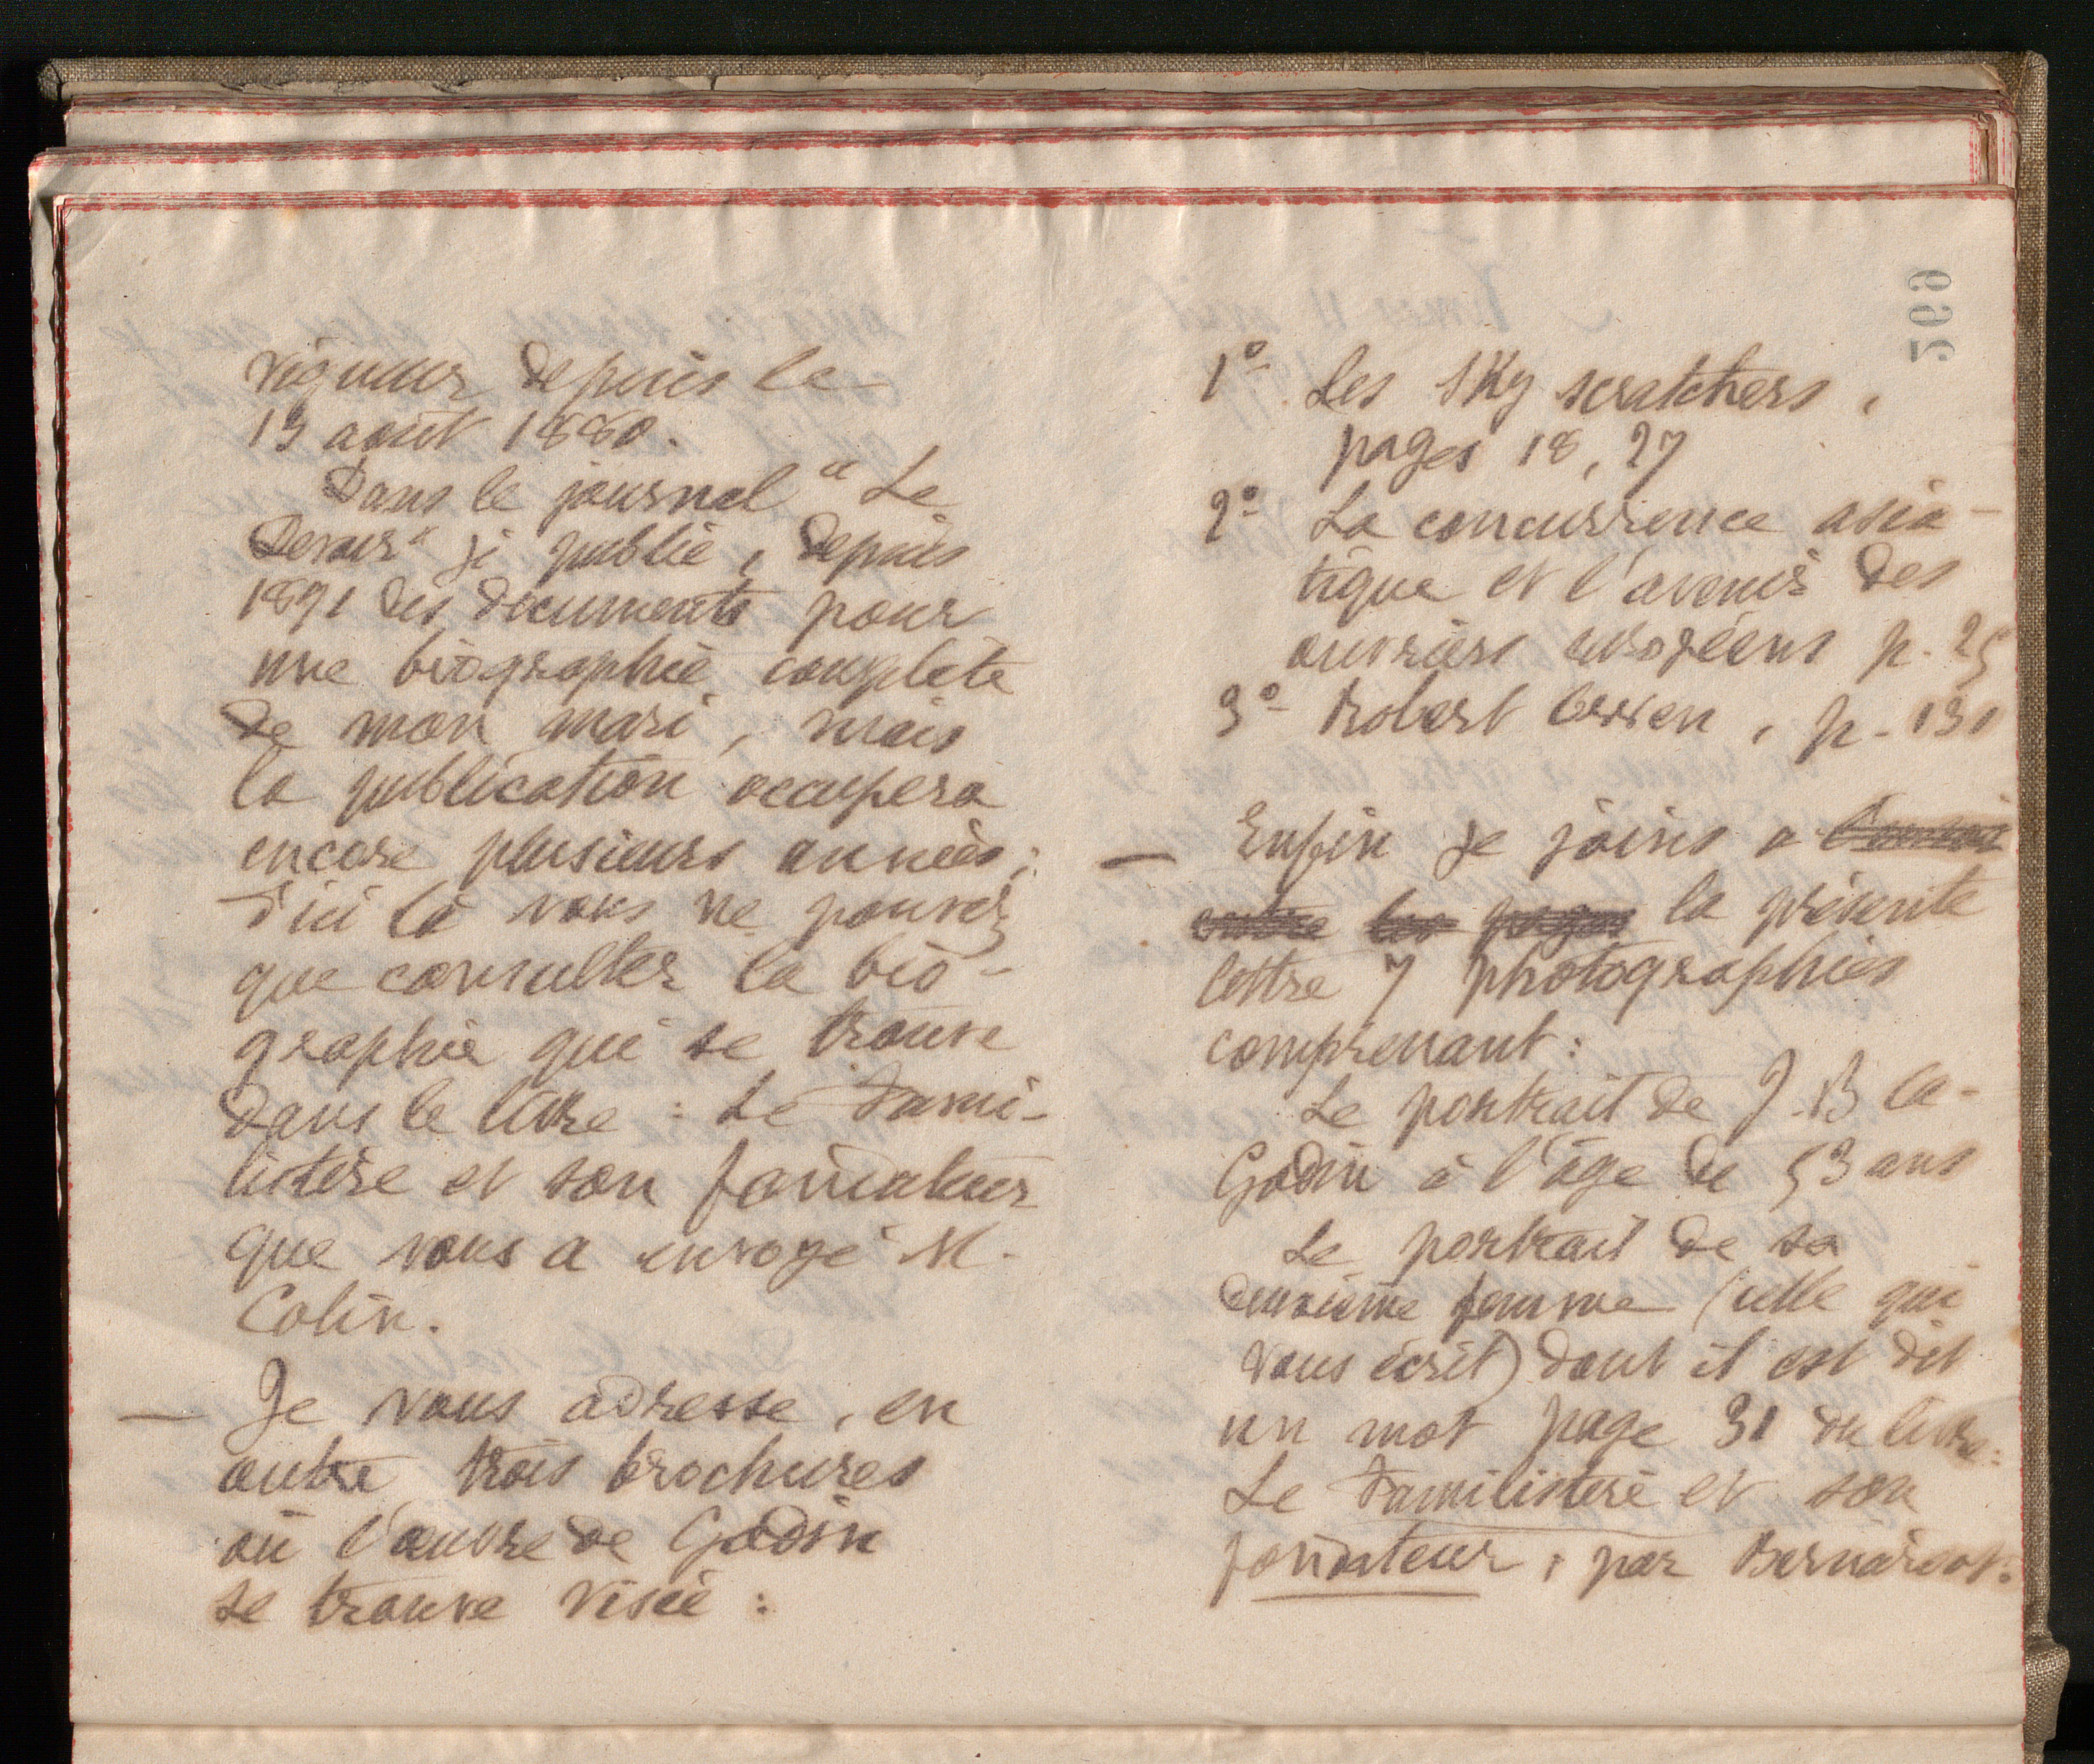 vigueur depuis le
13 août 1880.
Dans le journal " Le
Devoir " je publie, depuis
1891 des documents pour
une biographie complète
de mon mari, mais
la publication occupera
encore plusieurs années ;
d'ici là vous ne pouvez
que consulter la bio-
graphie qui se trouve
dans le livre : Le Fami-
listère et son fondateur
que vous a envoyé M.
Colin.
— Je vous adresse, en
outre trois brochures
où l'œuvre de Godin
se trouve visée :
569
1º Les Sky scratchers,
pages 18, 27
2º La concurrence asia-
tique et l'avenir des
ouvriers européens p. 25
3º Robert Owen, p. 131
— Enfin je joins a
outre les pages la présente
lettre 7 photographies
comprenant :
Le portrait de J. Bte A.
Godin à l'âge de 53 ans
Le portrait de sa
deuxième femme (celle qui
vous écrit) dont il est dit
un mot page 31 du livre :
Le Familistère et son
fondateur, par Bernardot.